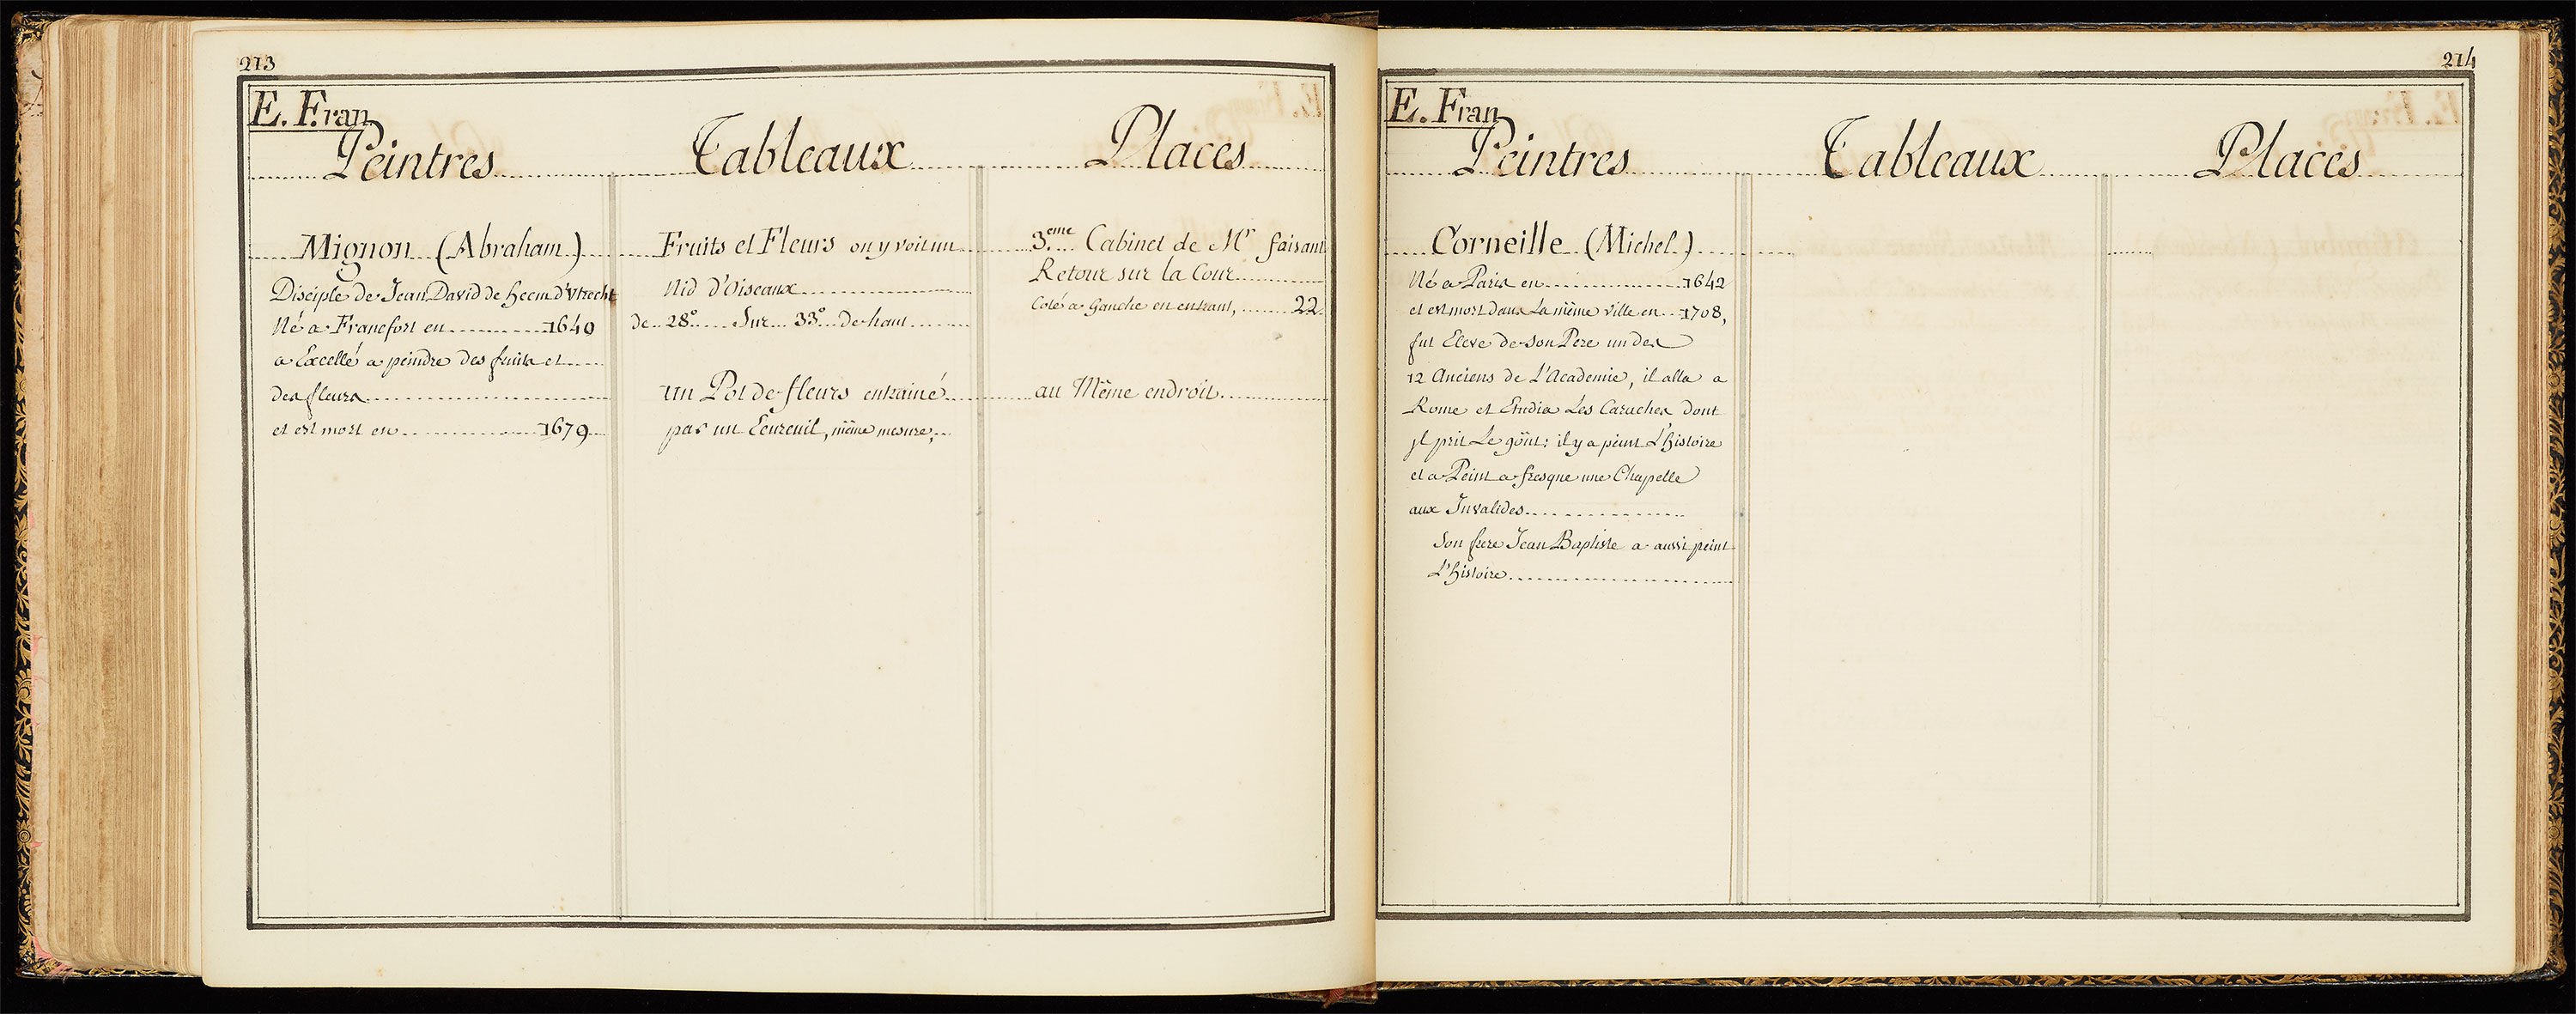 213
E. Fran
Peintres Tableaux Places
Mignon (Abraham)
Disciple de Jean David de heem d'Utrecht
Né a Francfort en 1640
a Excellé a peindre des fruits et
des fleurs
et est mort en 1679
Fruits et Fleurs on y voit un
Nid d'Oiseaux
de 28° Sur 33° de haut
un Pot de fleurs entrainé
par un Ecureuil, même mesure,
3.eme Cabinet de Mr faisant
Retour sur la Cour
Coté a Gauche en entrant, 22
au Même endroit
214
E. Fran
Peintres Tableaux Places
Corneille (Michel)
Né a Paris en 1642
et est mort dans La même ville en 1708,
fut Eleve de son Pere un des
12 Anciens de L'Academie, il alla a
Rome et Etudia Les Caraches dont
jl prit Le goût: il y a peint L'histoire
et a Peint a fresque une Chapelle
aux Invalides
Son frere Jean Baptiste a aussi peint
L'histoire